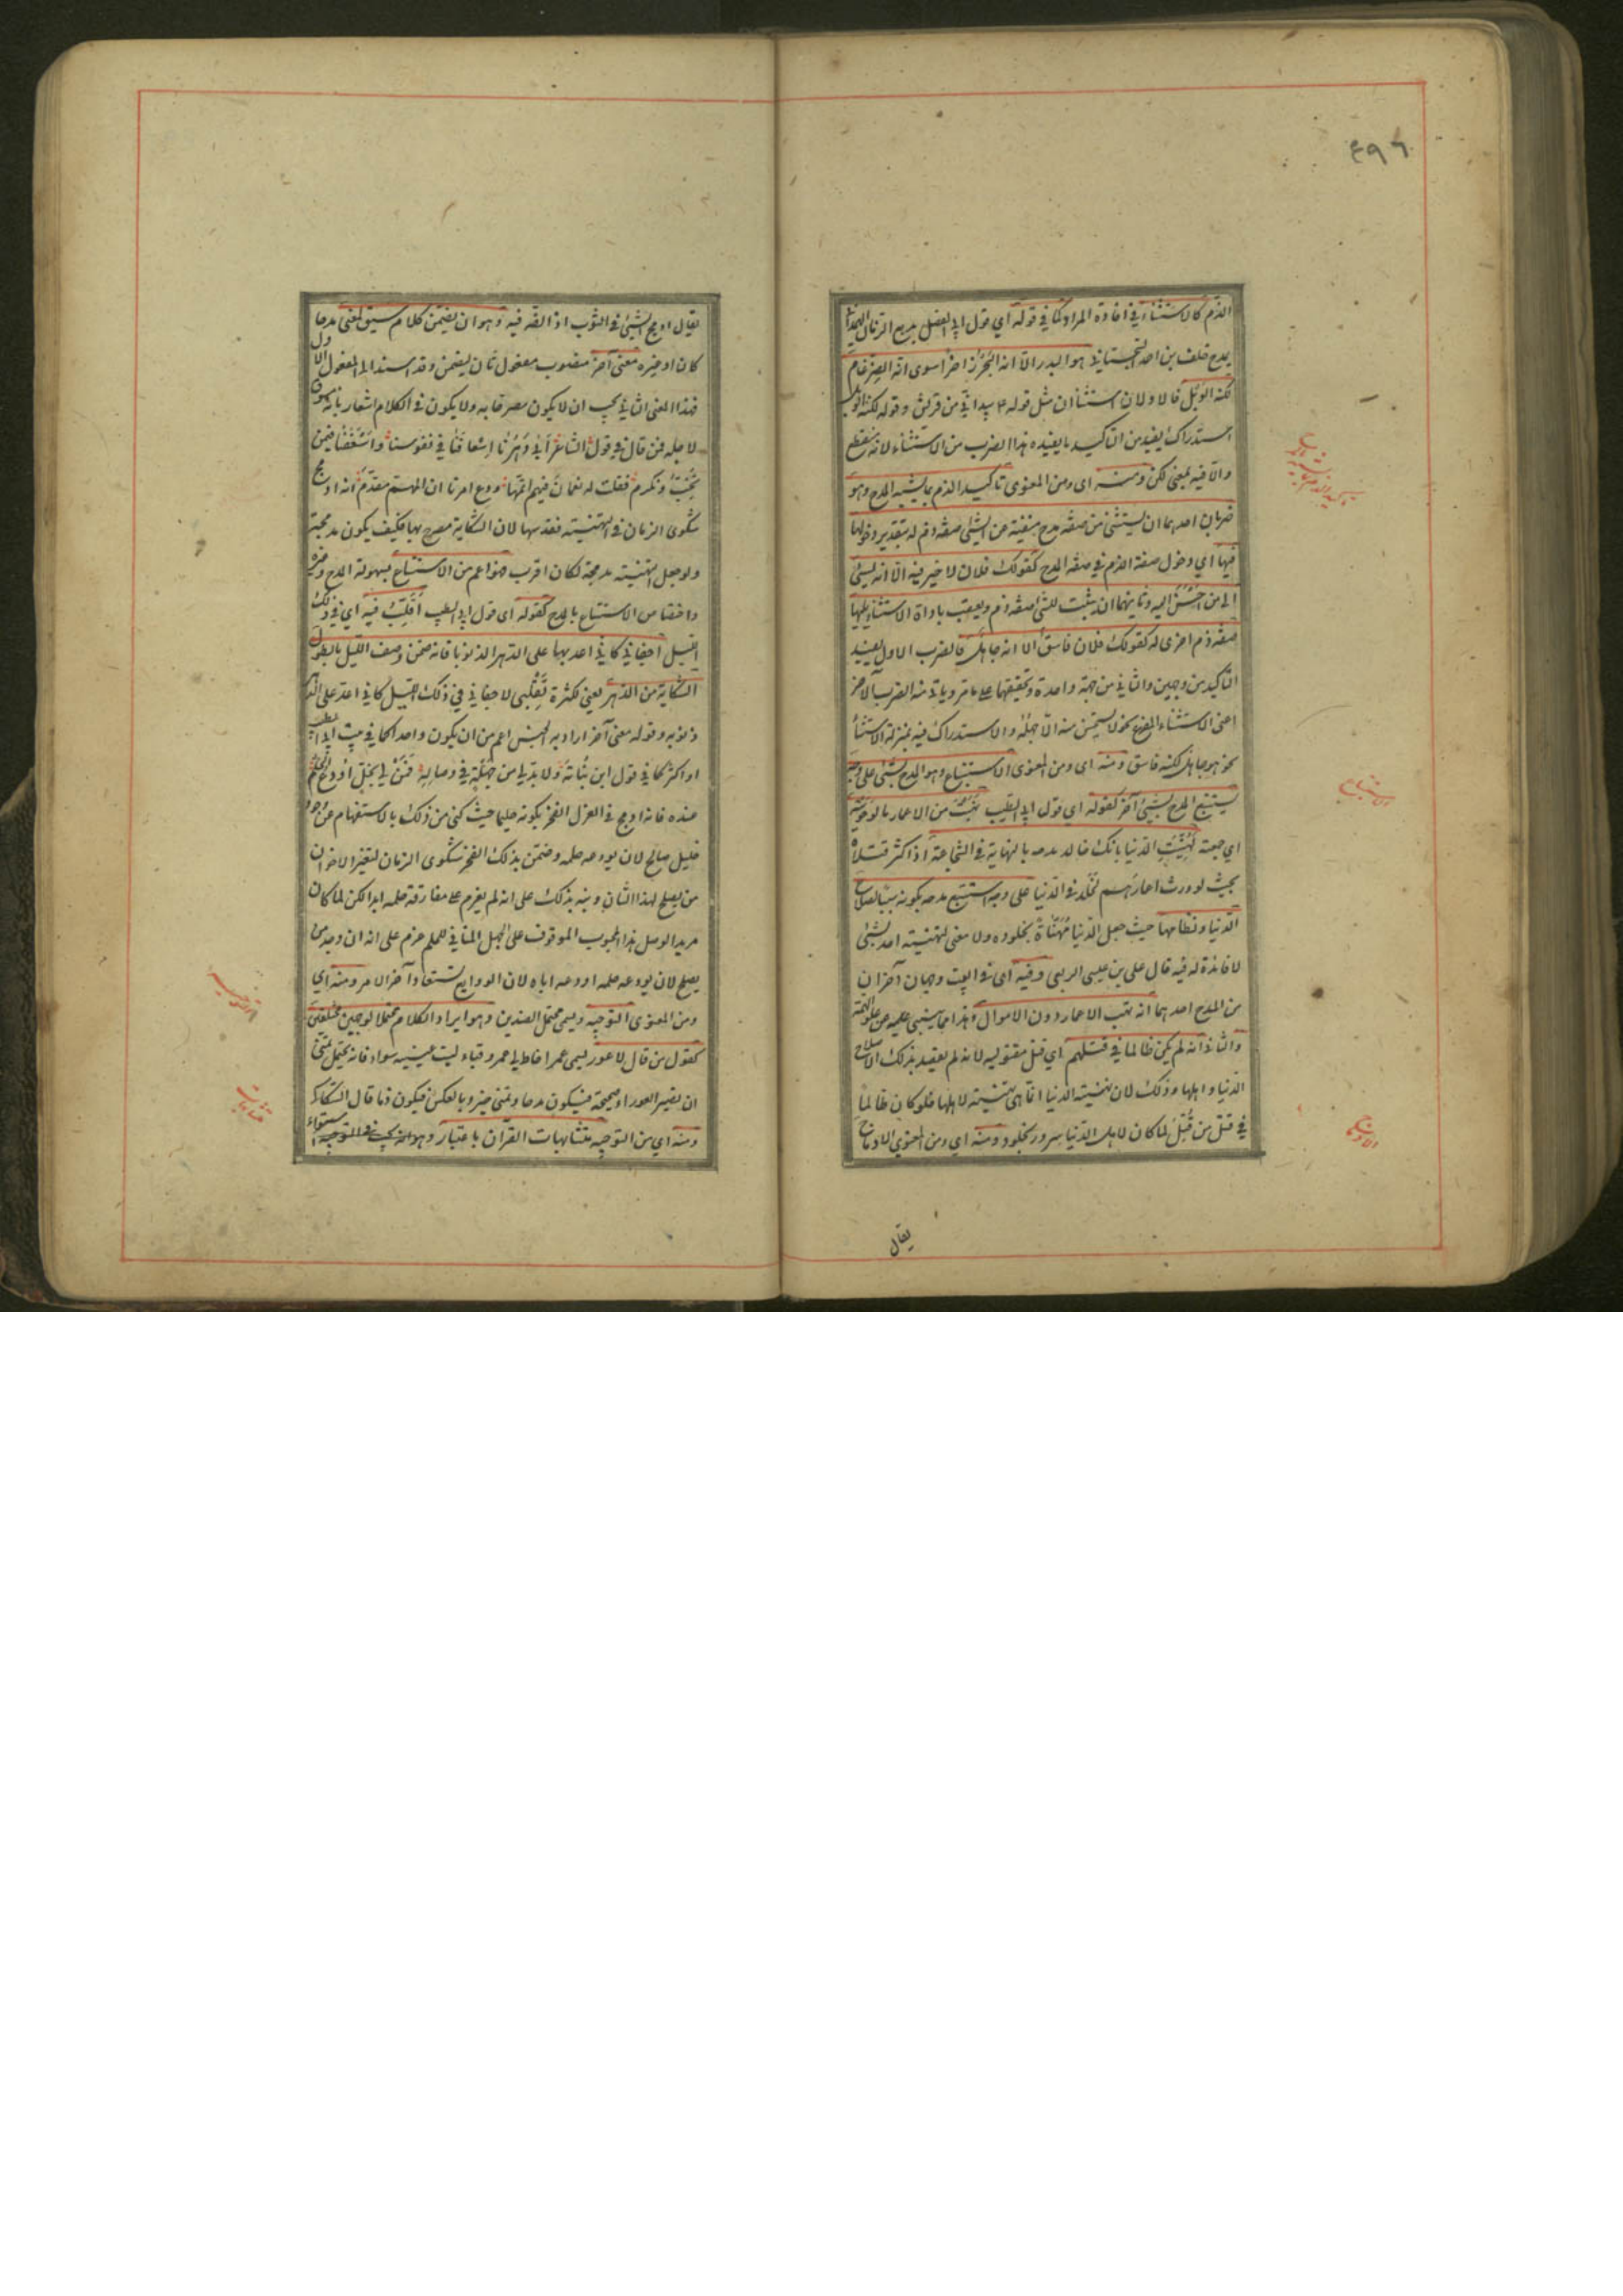 ٤٩٦
الذم كالاستثناء في افادة المراد كما في قوله اي قول ابي الفضل بديع الزمان الهمداني
يمدح خلف بن احمد السجستاني هو البدر الا انه البحر زاخرا سوى انه الضرغام
لكنه الوبل فالاولان استثناان مثل قوله ع بيد اني من قريش وقوله لكنه الوبل
استدراك يفيد من التاكيد ما يفيده هذا الضرب من الاستثناء لانه منقطع
والا فيه بمعنى لكن ومنه اى ومن المعنوى تاكيد الذم بما يشبه المدح وهو
ضربان احدهما ان يستثنى من صفة مدح منفية عن الشئ صفة ذم له بتقدير دخولها
فيها اي دخول صفة الذم في صفة المدح كقولك فلان لا خير فيه الا انه يسئ
الى من احسن اليه وثانيهما ان يثبت للشئ صفة ذم ويعقب باداة الاستثناء يليها
صفة ذم اخرى له كقولك فلان فاسق الا انه جاهل فالضرب الاول يفيد
التاكيد من وجهين والثاني من جهة واحدة وتحقيقها على ما مر وياتي منه الضرب الاخر
اعنى الاستثناء المفرغ نحو لا يستحسن منه الا جهله والاستدراك فيه بمنزلة الاستثناء
نحو هو جاهل لكنه فاسق ومنه اى ومن المعنوى الاستتباع وهو المدح بشئ على وجه
يستتبع المدح بشئ آخر كقوله اي قول ابي الطيب نهبت من الاعمار ما لو حويته
اي جمعته لهنئت الدنيا بانك خالد مدحه بالنهاية في الشجاعة اذ اكثر قتلاه
بحيث لو ورث اعمارهم لخلد في الدنيا على وجه استتبع مدحه بكونه سببا لصلاح
الدنيا ونظامها حيث جعل الدنيا مهناة بخلوده ولا معنى لتهنيته احد بشئ
لا فائدة له فيه قال على بن عيسى الربعى وفيه اى في البيت وجهان آخران
من المدح احدهما انه نهب الاعمار دون الاموال وهذا مما ينبئ عن علو الهمة
والثاني انه لم يكن ظالما في قتلهم اي قتل مقتوليه لانه لم يقصد بذلك الا صلاح
الدنيا واهلها وذلك لان تهنيته الدنيا انما هى تهنيته لاهلها فلو كان ظالما
في قتل من قتل لما كان لاهل الدنيا سرور بخلوده ومنه اي ومن المعنوي الادماج
يقال
تاكيد الذم بما يشبه المدح
الاستتباع
الادماج
يقال ادمج الشئ في الثوب اذا لفه فيه وهو ان يضمن كلام سيق لمعنى مدحا
كان او غيره معنى آخر منصوب مفعول ثان ليضمن وقد اسند الى المفعول الاول
فهذا المعنى الثاني يجب ان لا يكون مصرحا به ولا يكون في الكلام اشعار بانه مسوق
لاجله فمن قال في قول الشاعر ابى دهرنا اسعافنا في نفوسنا واسعفنا فيمن
نحب ونكرم فقلت له نعماك فيهم اتمها ودع امرنا ان المهم مقدم انه ادمج
شكوى الزمان في التهنيته فقد سها لان الشكاية مصرح بها فكيف يكون مدمجة
ولو جعل التهنيته مدمجة لكان اقرب فهو اعم من الاستتباع لشموله المدح وغيره
واختصاص الاستتباع بالمدح كقوله اى قول ابي الطيب اقلب فيه اي في ذلك
الليل اجفاني كاني اعد بها على الدهر الذنوبا فانه ضمن وصف الليل بالطول
الشكاية من الدهر يعني لكثرة تقلبي لاجفاني في ذلك الليل كاني اعد على الدهر
ذنوبه وقوله معنى آخر اراد به الجنس اعم من ان يكون واحدا كما في بيت ابي الطيب
او اكثر كما في قول ابن نباتة ولا بد لي من جهلة في وصاله فمن لي بخل اودع الحلم
عنده فانه ادمج في الغزل الفخر بكونه حليما حيث كنى من ذلك بالاستفهام عن وجود
خليل صالح لان يودعه حلمه وضمن بذلك الفخر شكوى الزمان لتغير الاخوان
من يصلح لهذا الشان ونبه بذلك على انه لم يعزم على مفارقة حلمه ابدا لكن لما كان
مريدا لوصل هذا المحبوب الموقوف على الجهل المنافي للحلم عزم على انه ان وجد من
يصلح لان يودعه حلمه اودعه اياه لان الودايع تستعاد آخر الامر ومنه اي
ومن المعنوى التوجيه ويسمى محتمل الضدين وهو ايراد الكلام محتملا لوجهين مختلفين
كقول من قال لاعور يسمى عمرا خاط لي عمرو قباء ليت عينيه سواء فانه يحتمل تمنى
ان يصير العوراء صحيحة فيكون مدحا وتمنى خير وبالعكس فيكون ذما قال السكاكى
ومنه اي من التوجيه متشابهات القران باعتبار
التوجيه
متشابهات